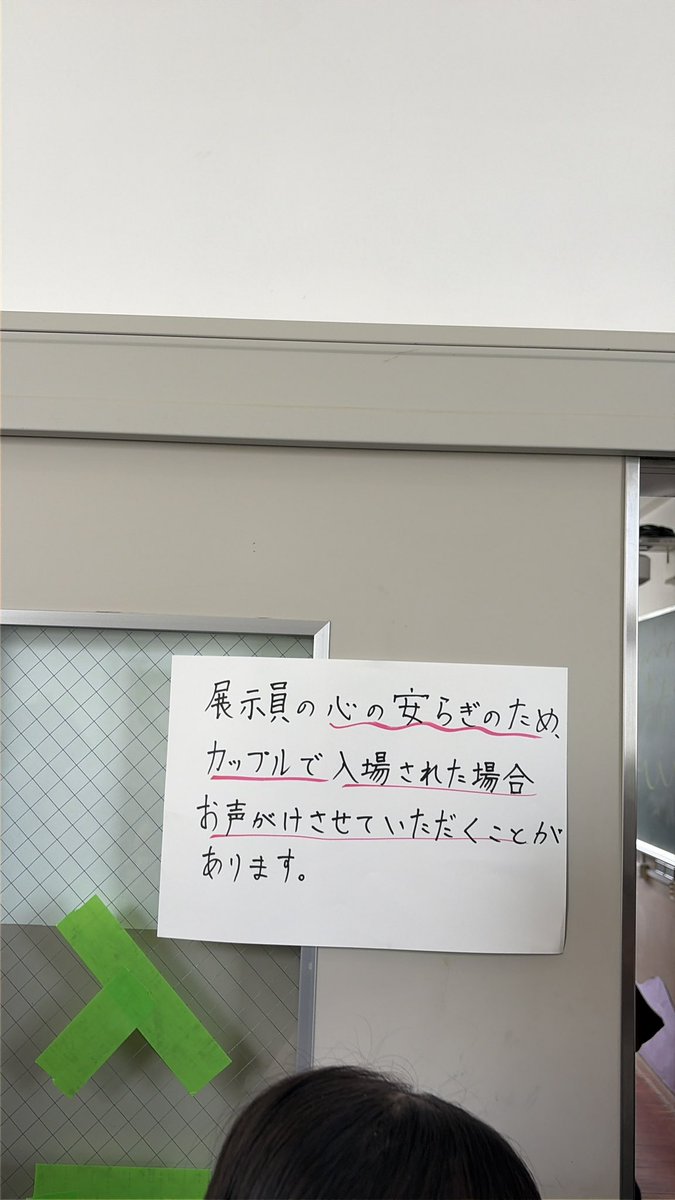 展示員の心の安らぎのため、
カップルで入場された場合
お声がけさせていただくことが
あります。